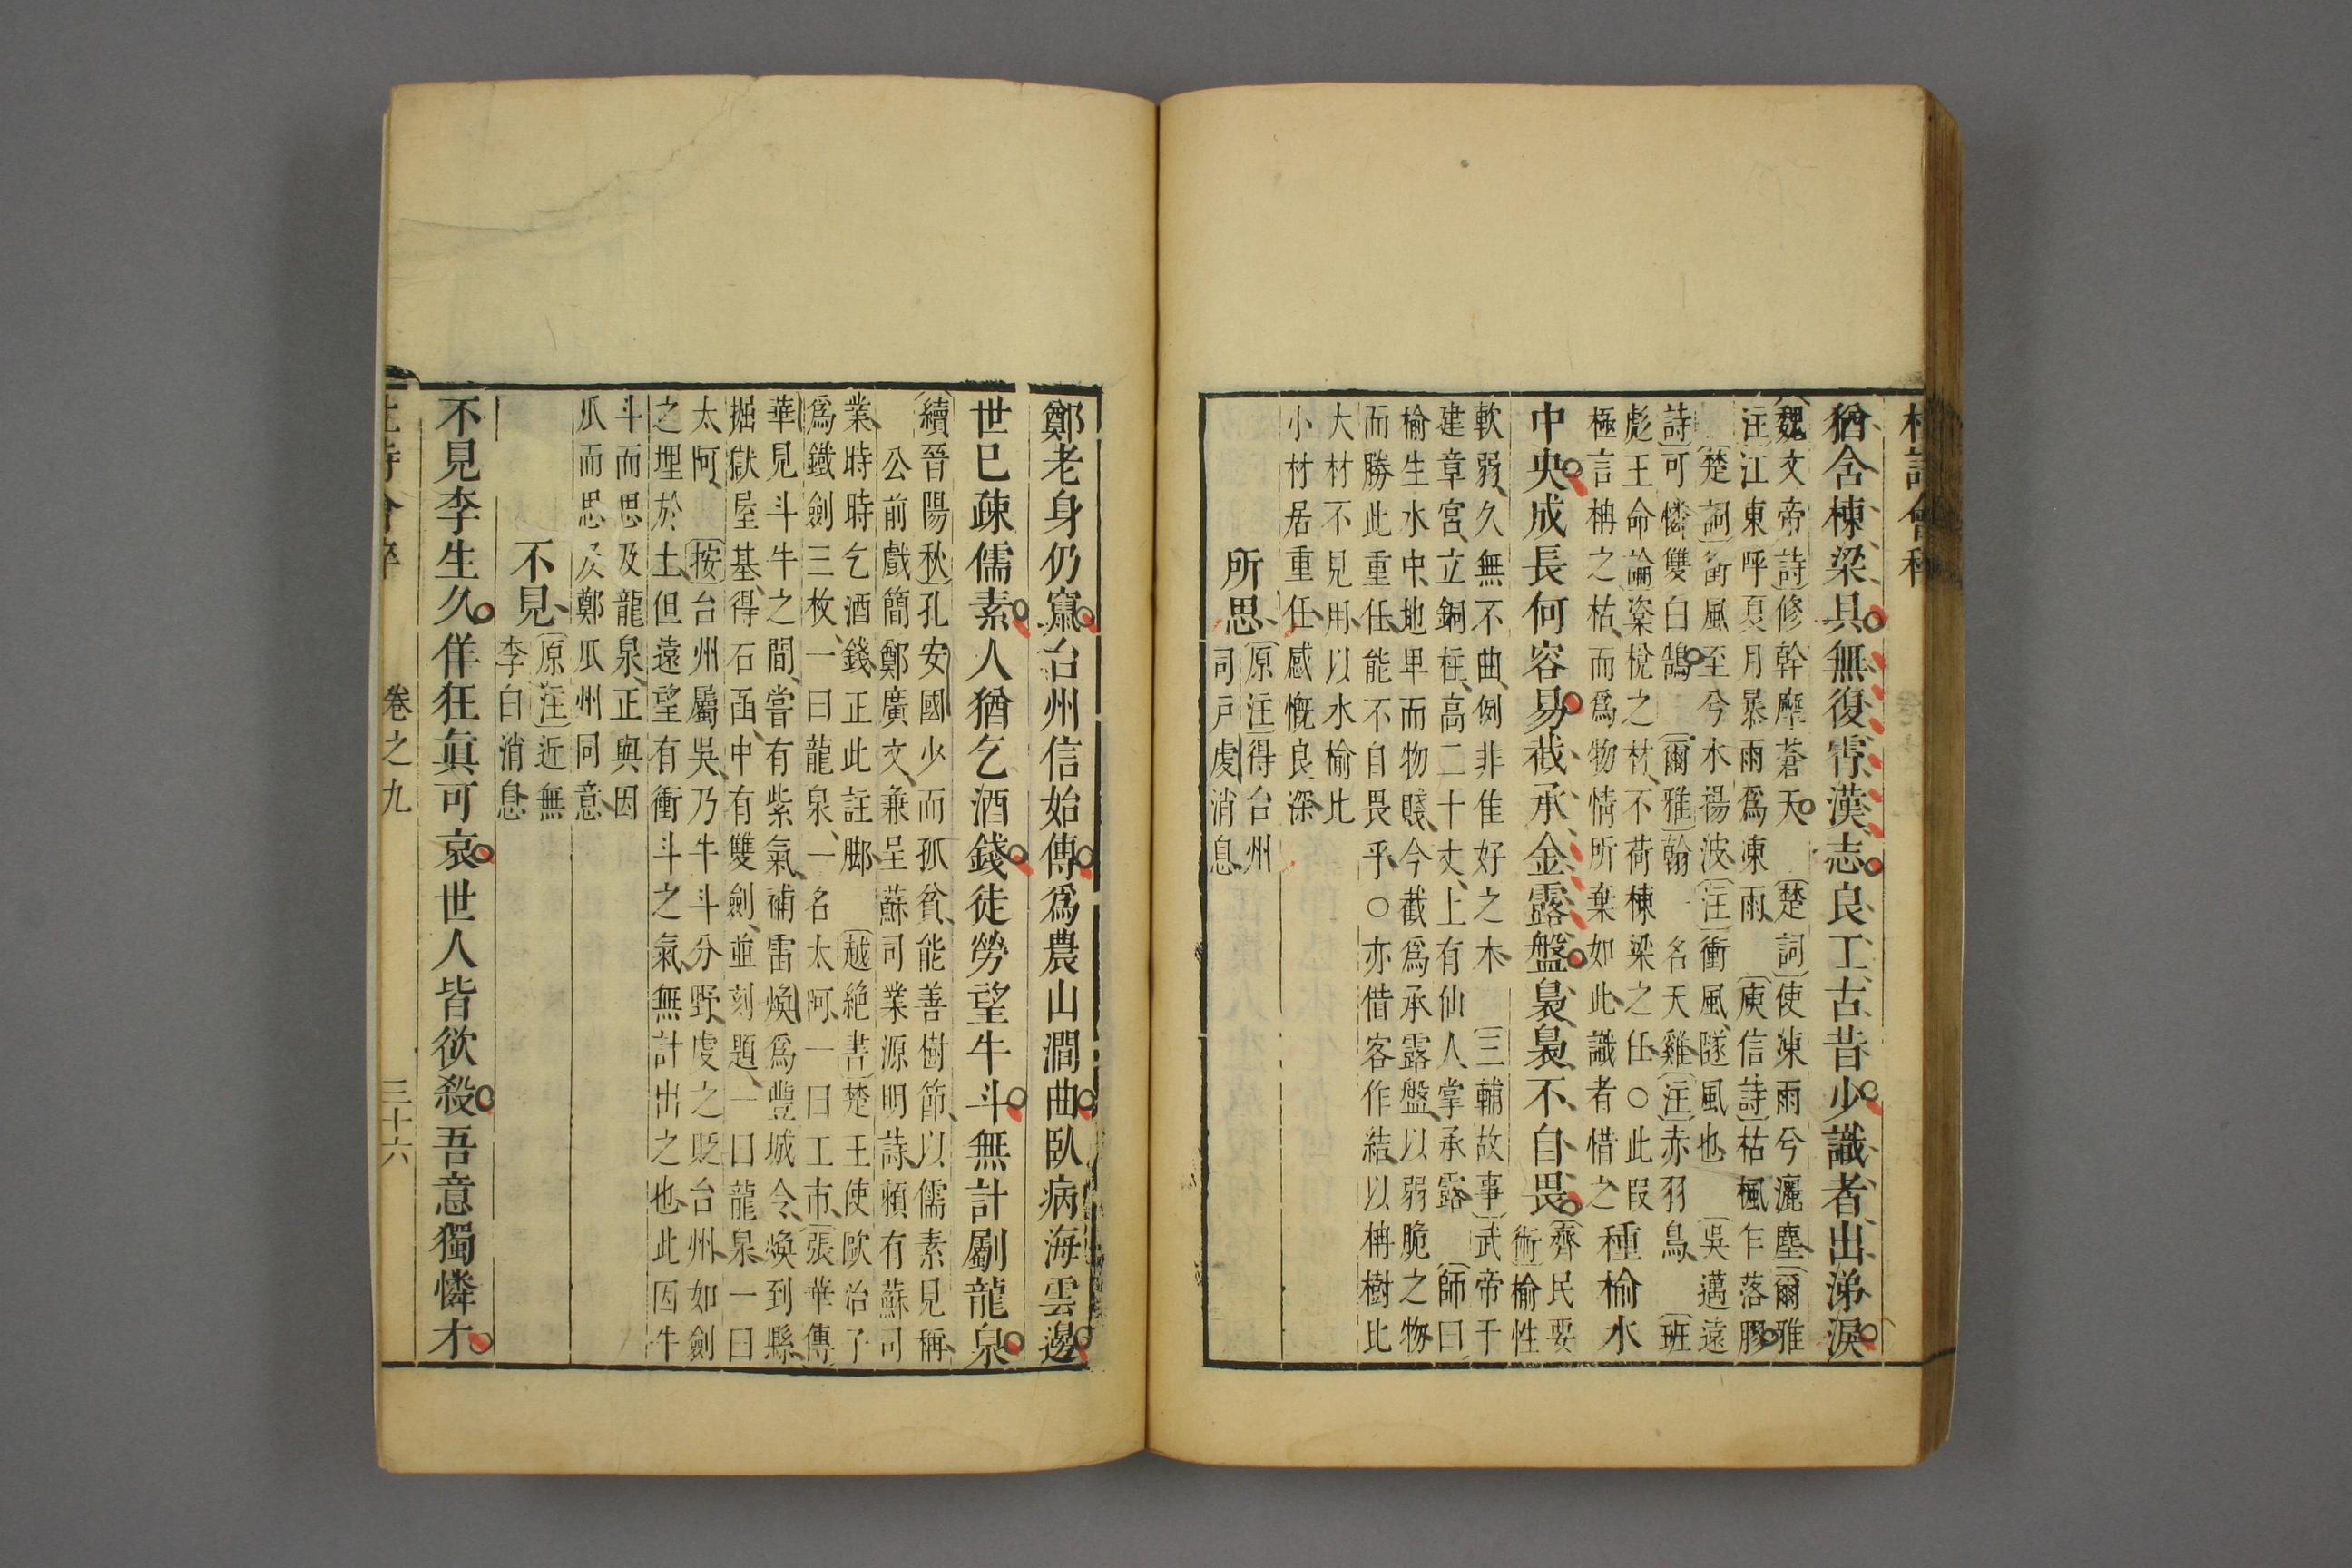 杜詩會稡
猶含棟梁具無復霄漢志良工古昔少識者出涕淚
魏文帝詩修幹摩蒼天 楚詞使涷雨兮灑塵爾雅
注江東呼夏月暴雨爲涷雨 庾信詩枯楓乍落膠
楚詞衝風至兮水揚波注衝風隧風也 吳邁遠
詩可憐雙白鵠 爾雅翰一名天雞注赤羽鳥 班
彪王命論楶梲之材不荷棟梁之任○此段 種榆水
極言枏之枯而爲物情所棄如此識者惜之
中央成長何容易截承金露盤裊裊不自畏 齊民要
術榆性
軟弱久無不曲例非佳好之木 三輔故事武帝于
建章宮立銅柱高二十丈上有仙人掌承露 師曰
榆生水中地卑而物賤今截爲承露盤以弱脆之物
而勝此重任能不自畏乎○亦借客作結以枏樹比
大材不見用以水榆比
小材居重任感慨良深
所思 原注得台州
司戸虔消息
鄭老身仍竄台州信始傳爲農山澗曲臥病海雲邊
世已疎儒素人猶乞酒錢徒勞望牛斗無計劚龍泉
續晉陽秋孔安國少而孤貧能善樹節以儒素見稱
公前戲簡鄭廣文兼呈蘇司業源明詩賴有蘇司
業時時乞酒錢正此註脚 越絶書楚王使歐冶子
爲鐵劍三枚一曰龍泉一名太阿一曰工市張華傳
華見斗牛之間嘗有紫氣補雷煥爲豐城令煥到縣
掘獄屋基得石函中有雙劍並刻題一曰龍泉一曰
太阿 按台州屬吳乃牛斗分野虔之貶台州如劍
之埋於土但遠望有衝斗之氣無計出之也此因牛
斗而思及龍泉正與因
瓜而思及鄭瓜州同意
不見 原注近無
李白消息
不見李生久佯狂眞可哀世人皆欲殺吾意獨憐才
杜詩會稡 卷之九 三十六